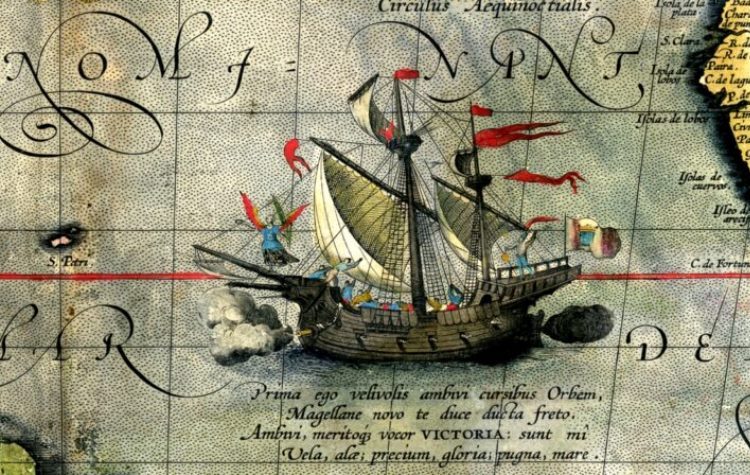 Circulus Aequinoctialis.
Isola de la
plata.
S. Clara
R. de
Paira.
Isola de
lobos
C. de
P. de
Isolas de lobos
NOMJ= NANT
Isolas de
cuervos.
Isleo de
S. Petri.
C. de Fortun
AR DE
Prima ego velivolis ambivi cursibus Orbem,
Magellane novo te duce ducta freto.
Ambivi, meritoq; vocor VICTORIA: sunt mi
Vela, alæ; precium, gloria; pugna, mare.